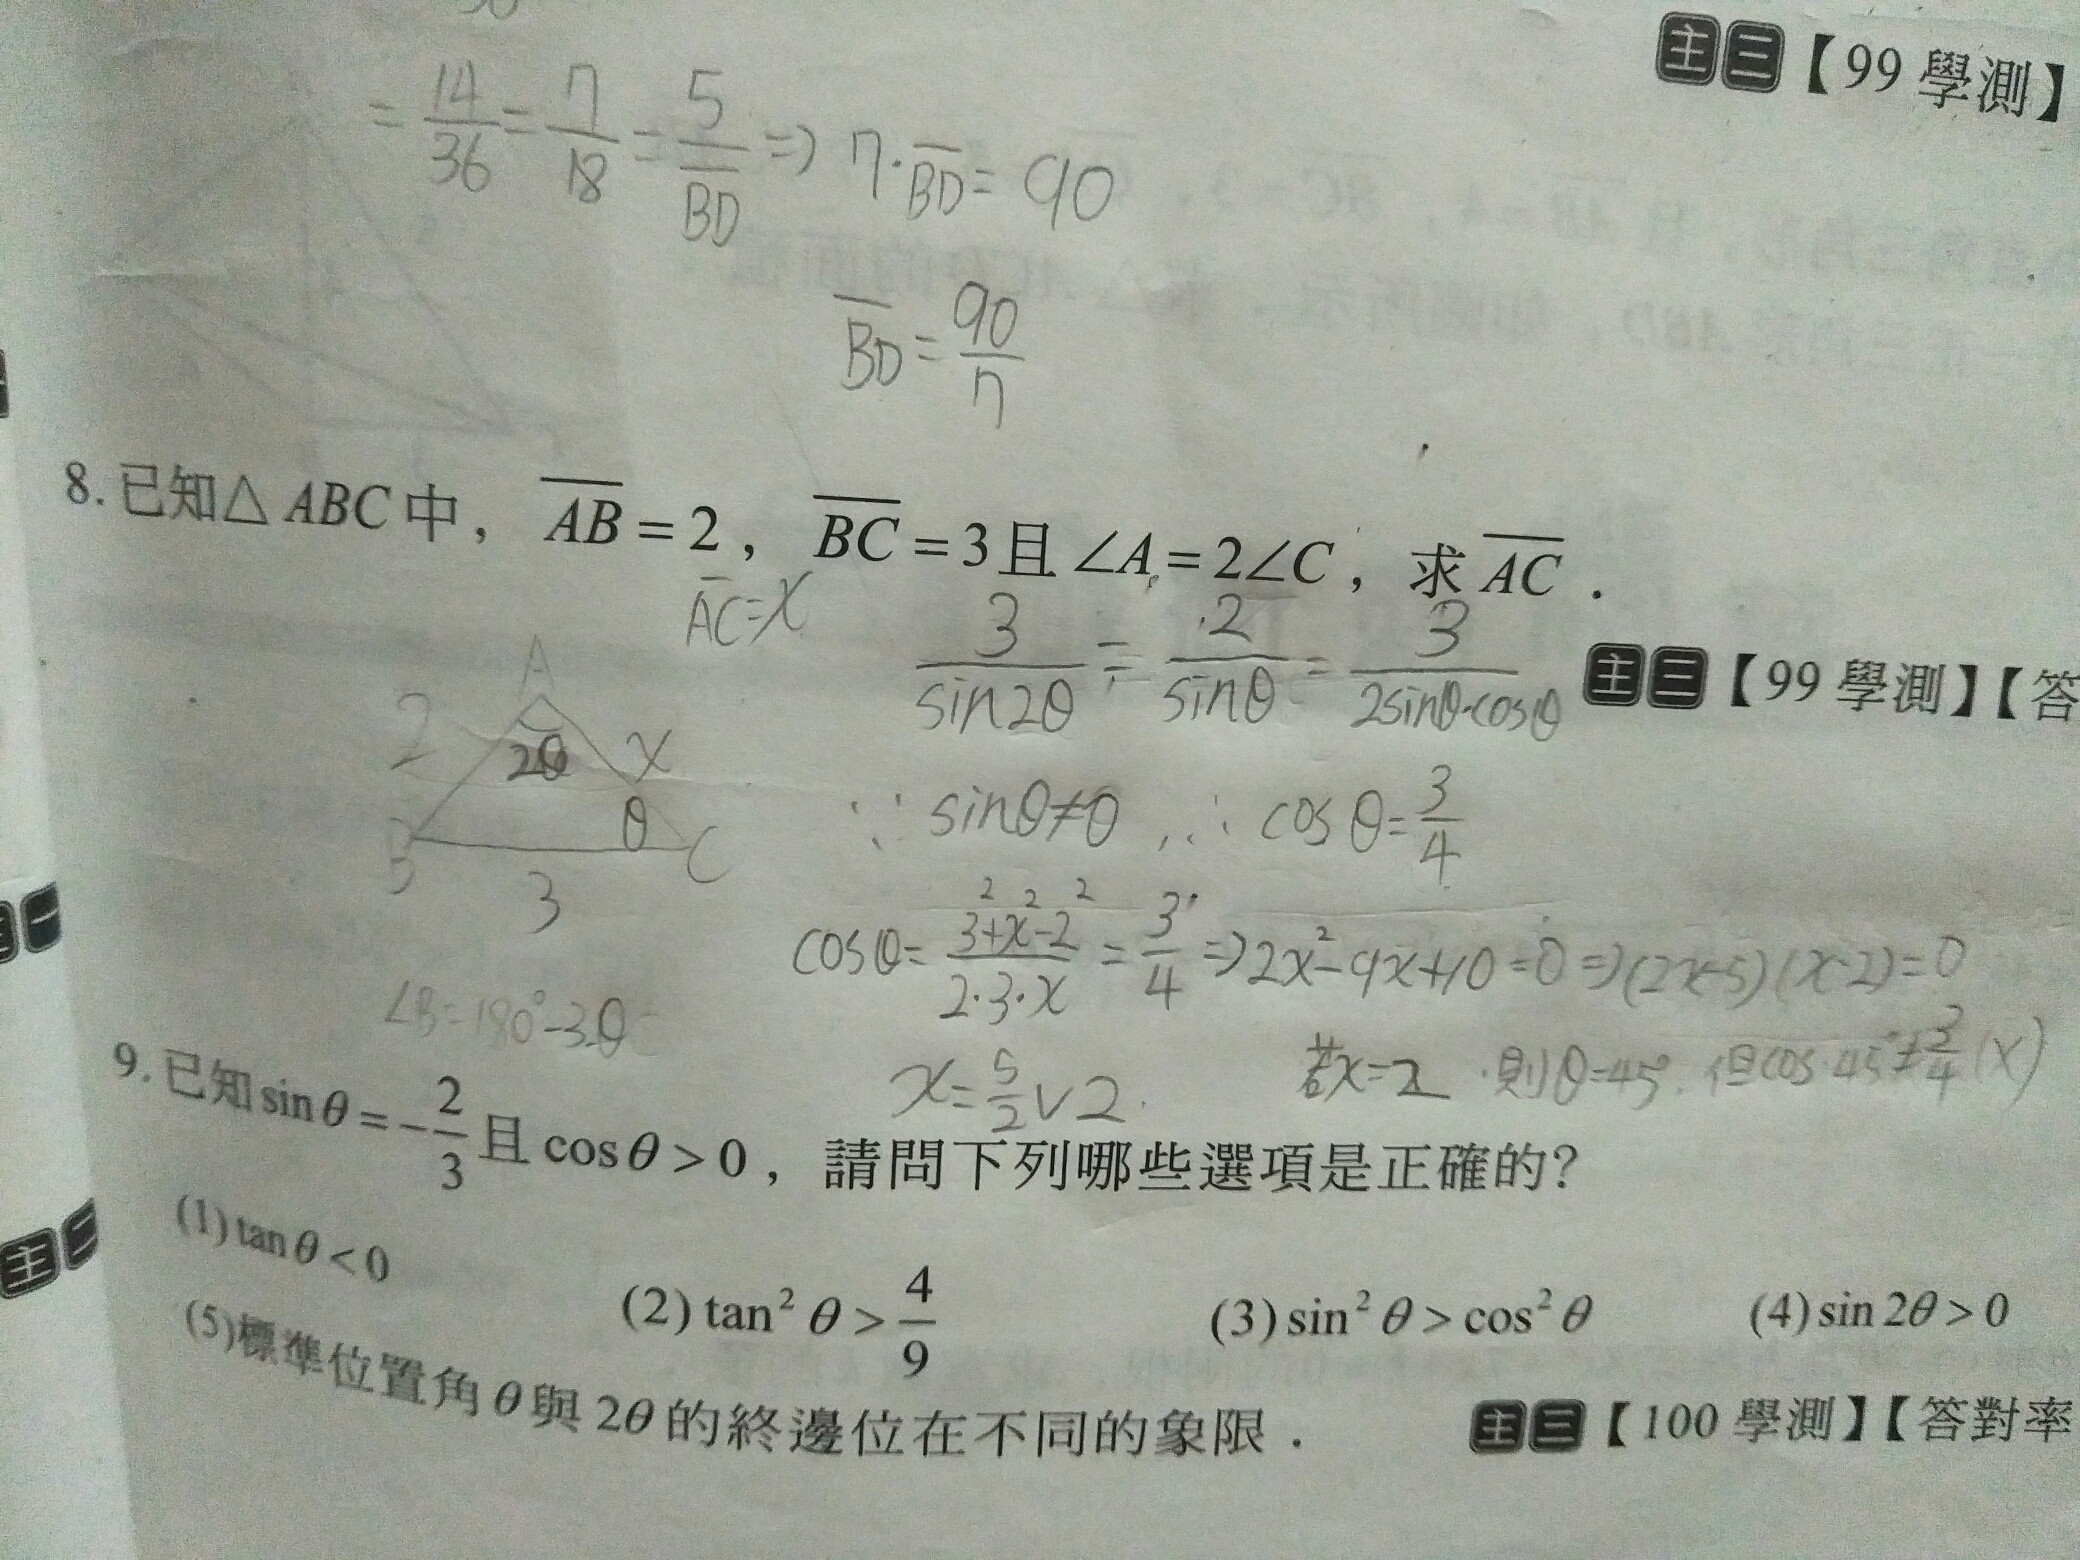 主三【99 學測】
= 14/36 = 7/18 = 5/BD ⇒ 7·BD = 90
BD = 90/7
8. 已知△ABC中，AB = 2，BC = 3且∠A = 2∠C，求AC．
AC = x
3/sin2θ = 2/sinθ = 3/2sinθ·cosθ
主三【99 學測】【答
A
2 2θ x
θ
B 3 C
∵ sinθ≠0 ，∴ cosθ = 3/4
cosθ = 3²+x²-2²/2·3·x = 3/4 ⇒ 2x²-9x+10=0 ⇒ (2x-5)(x-2)=0
∠B=180°-3θ
x = 5/2 ∨ 2. 若x=2 則θ=45°，但cos45°≠3/4 (×)
9. 已知sinθ = -2/3 且cosθ > 0，請問下列哪些選項是正確的?
(1) tanθ < 0 (2) tan² θ > 4/9 (3) sin² θ > cos² θ (4) sin 2θ > 0
(5)標準位置角θ與2θ的終邊位在不同的象限．
主三【100 學測】【答對率
主二